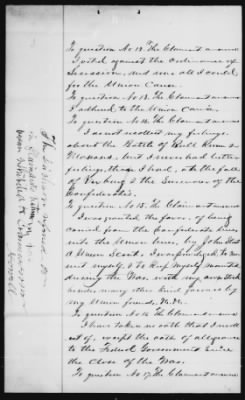 To question No 12 The Claimant answers
I voted against the Ordinance of
Secession, and did all I could
for the Union Cause.
To question No 13. The Claimant answers
I adhered to the Union Cause.
To question No 14 The Claimant answers
I do not recollect my feelings
about the Battle of Bull Run &
Manassas, but I never had better
feelings, than I had, at the fall
of Vicksburg & the Surrender of the
Confederates.
To question No 15. The Claimant answers
I was granted the favor, of being
carried from the Confederate lines,
into the Union lines, by John
A Union Scout. I was furnished to
myself,
during the War, with my
many other kind favors by
my Union friends.
To question No 16 The Claimant answers
I have taken no oath that I recollect
of, except the oath of allegiance
to the Federal Government since
the Close of the War.
To question No 17 The Claimant answers
The
in